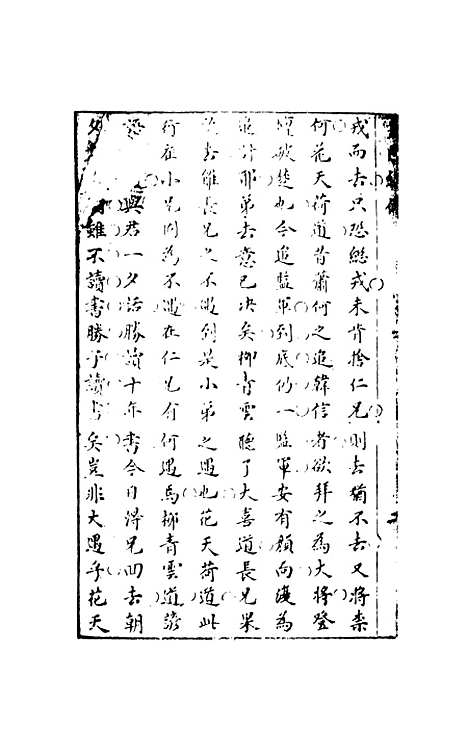 戎而去只恐總戎未肯捨仁兄則去猶不去又將柰
何花天荷道昔蕭何之追韓信者欲拜之為大將登
壇破楚也今追監軍到底仍一監軍安有顏向後為
追討耶弟去意已决矣柳青雲聽了大喜道長兄果
去雖長兄之不遇到是小弟之遇也花天荷道此
行在小兄固為不遇在仁兄有何遇焉柳青雲道豈
恐 與君一夕話勝讀十年書今日得兄囬去朝
夕 雖不讀書勝于讀書矣豈非大遇乎花天